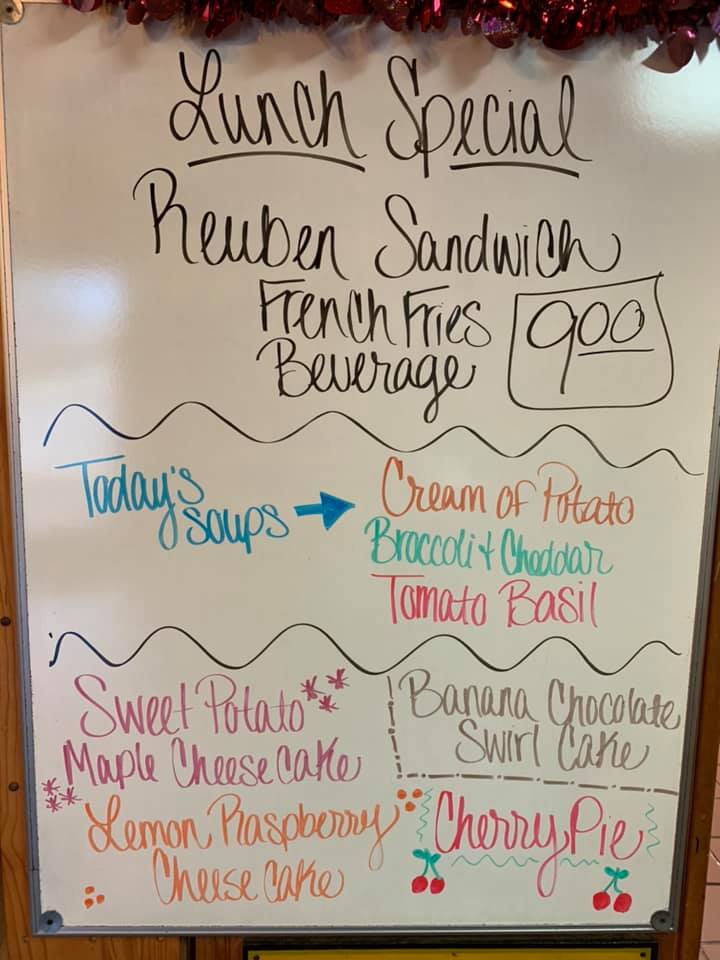 Lunch Special
Reuben Sandwich
French Fries
Beverage
9.00
Today's
soups
Cream of Potato
Broccoli & Cheddar
Tomato Basil
Sweet Potato
Maple Cheese cake
Banana Chocolate
Swirl Cake
Lemon Raspberry
Cheese cake
Cherry Pie